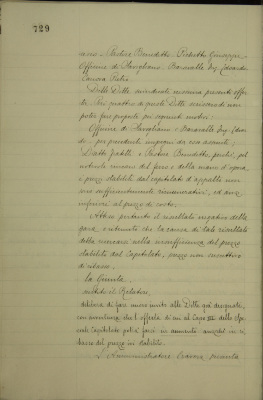 729
vanni - Pastore Benedetto - Pedrotti Giuseppe -
Officine di Savigliano - Bauchiello Ing. Edoardo
Canova Pietro.
Delle Ditte suindicate nessuna presentò offer-
te. Sei quattro di questi Ditte scrissero di non
poter fare proposte pei seguenti motivi:
Officine di Savigliano e Ing. Edoar-
do, per precedenti impegni da esse assunti;
Ditta fratelli e Pastore Benedetto perché, pel
notevole rincaro del ferro e della mano d'opera,
i prezzi stabiliti dal capitolato d'appalto non
sono sufficientemente rimunerativi, ed anzi
inferiori al prezzo di costo.
Atteso pertanto il risultato negativo della
gara e ritenuto che la causa di tale risultato
della mancanza nella insufficienza del prezzo
stabilito dal Capitolato, prezzo non suscettivo
di ribasso.
La Giunta,
sentito il Relatore,
delibera di fare nuovo invito alle Ditte già designate,
con avvertenza che l'offerta di cui al Capo III dello Spe-
ciale Capitolato potrà farsi in aumento anziché in ri-
basso del prezzo ivi stabilito.
L'Amministratore Canova presenta